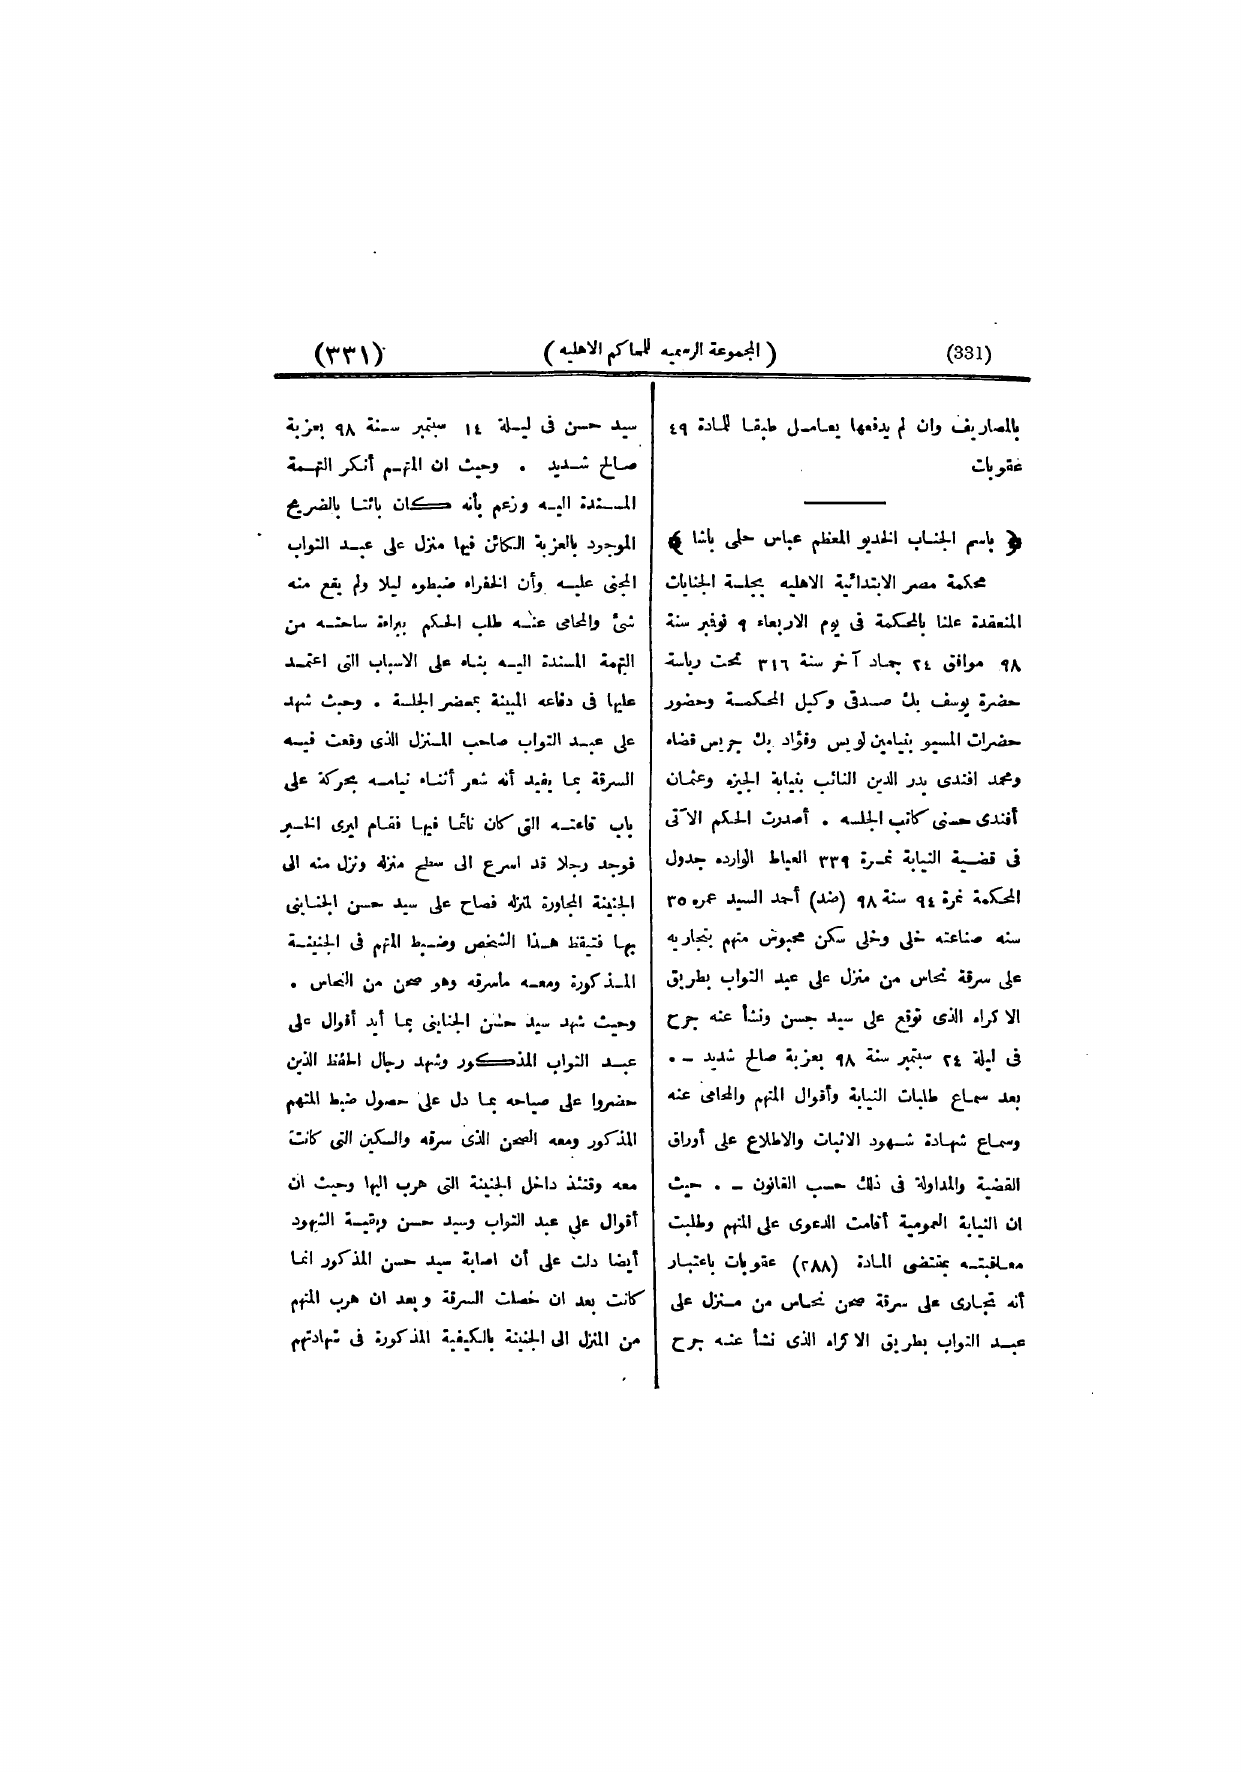 (331)
( المجموعة الرسميه للمحاكم الاهليه )
(٣٣١)
بالمصاريف وان لم يدفعها يعامل طبقا للمادة ٤٩
عقوبات
﴿ باسم الجناب الخديو المعظم عباس حلمى باشا ﴾
محكمة مصر الابتدائية الاهليه بجلسة الجنايات
المنعقدة علنا بالمحكمة فى يوم الاربعاء ٩ نوفمبر سنة
٩٨ موافق ٢٤ جماد آخر سنة ٣١٦ تحت رياسة
حضرة يوسف بك صدقى وكيل المحكمة وحضور
حضرات المسيو بنيامين لويس وفؤاد بك جريس قضاه
ومحمد افندى بدر الدين النائب بنيابة الجيزه وعثمان
أفندى حسنى كاتب الجلسه . أصدرت الحكم الآتى
فى قضية النيابة نمرة ٣٣٩ العياط الوارده جدول
المحكمة نمرة ٩٤ سنة ٩٨ (ضد) أحمد السيد عمره ٣٥
سنه صناعته خلى وخلى سكن محبوس متهم بتجاريه
على سرقة نحاس من منزل على عبد التواب بطريق
الاكراه الذى توقع على سيد حسن ونشأ عنه جرح
فى ليلة ٢٤ سبتمبر سنة ٩٨ بعزبة صالح شديد ــ .
بعد سماع طلبات النيابة وأقوال المتهم والمحامى عنه
وسماع شهادة شهود الاثبات والاطلاع على أوراق
القضية والمداولة فى ذلك حسب القانون ــ . حيث
ان النيابة العمومية أقامت الدعوى على المتهم وطلبت
معاقبته بمقتضى المادة (٢٨٨) عقوبات باعتبار
أنه تجارى على سرقة صحن نحاس من منزل على
عبد التواب بطريق الاكراه الذى نشأ عنه جرح
سيد حسن فى ليلة ١٤ سبتمبر سنة ٩٨ بعزبة
صالح شديد . وحيث ان المتهم أنكر التهمة
المسندة اليه وزعم بأنه كان بائتا بالضريح
الموجود بالعزبة الكائن فيها منزل على عبد التواب
المجنى عليه وأن الخفراء ضبطوه ليلا ولم يقع منه
شئ والمحامى عنه طلب الحكم ببراءة ساحته من
التهمة المسندة اليه بناء على الاسباب التى اعتمد
عليها فى دفاعه المبينة بمحضر الجلسة . وحيث شهد
على عبد التواب صاحب المنزل الذى وقعت فيه
السرقة بما يفيد أنه شعر أثناء نيامه بحركة على
باب قاعته التى كان نائما فيها فقام ليرى الخبر
فوجد رجلا قد اسرع الى سطح منزله ونزل منه الى
الجنينة المجاورة لمنزله فصاح على سيد حسن الجناينى
بها فتيقظ هذا الشخص وضبط المتهم فى الجنينة
المذكورة ومعه ماسرقه وهو صحن من النحاس .
وحيث شهد سيد حسن الجناينى بما أيد أقوال على
عبد التواب المذكور وشهد رجال الحفظ الذين
حضروا على صياحه بما دل على حصول ضبط المتهم
المذكور ومعه الصحن الذى سرقه والسكين التى كانت
معه وقتئذ داخل الجنينة التى هرب اليها وحيث ان
أقوال على عبد التواب وسيد حسن وبقية الشهود
أيضا دلت على أن اصابة سيد حسن المذكور انما
كانت بعد ان حصلت السرقة وبعد ان هرب المتهم
من المنزل الى الجنينة بالكيفية المذكورة فى شهادتهم